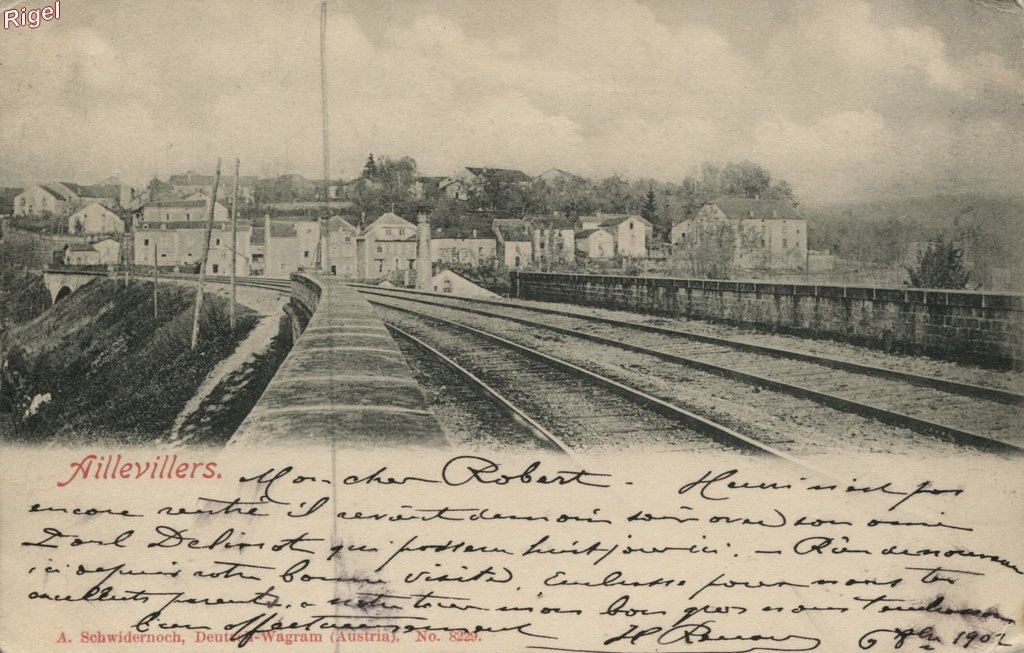 Rigel
Aillevillers.
Mon cher Robert. Henri n'est pas
encore rentré il revient demain soir avec son ami
Paul qui passera huit jours ici. — Rien de nouveau
ici depuis votre bonne visite. Embrasse pour nous tes
excellents parents, à
bien affectueusement H 6 1902
A. Schwidernoch, Deutsch-Wagram (Austria). No. 8229.